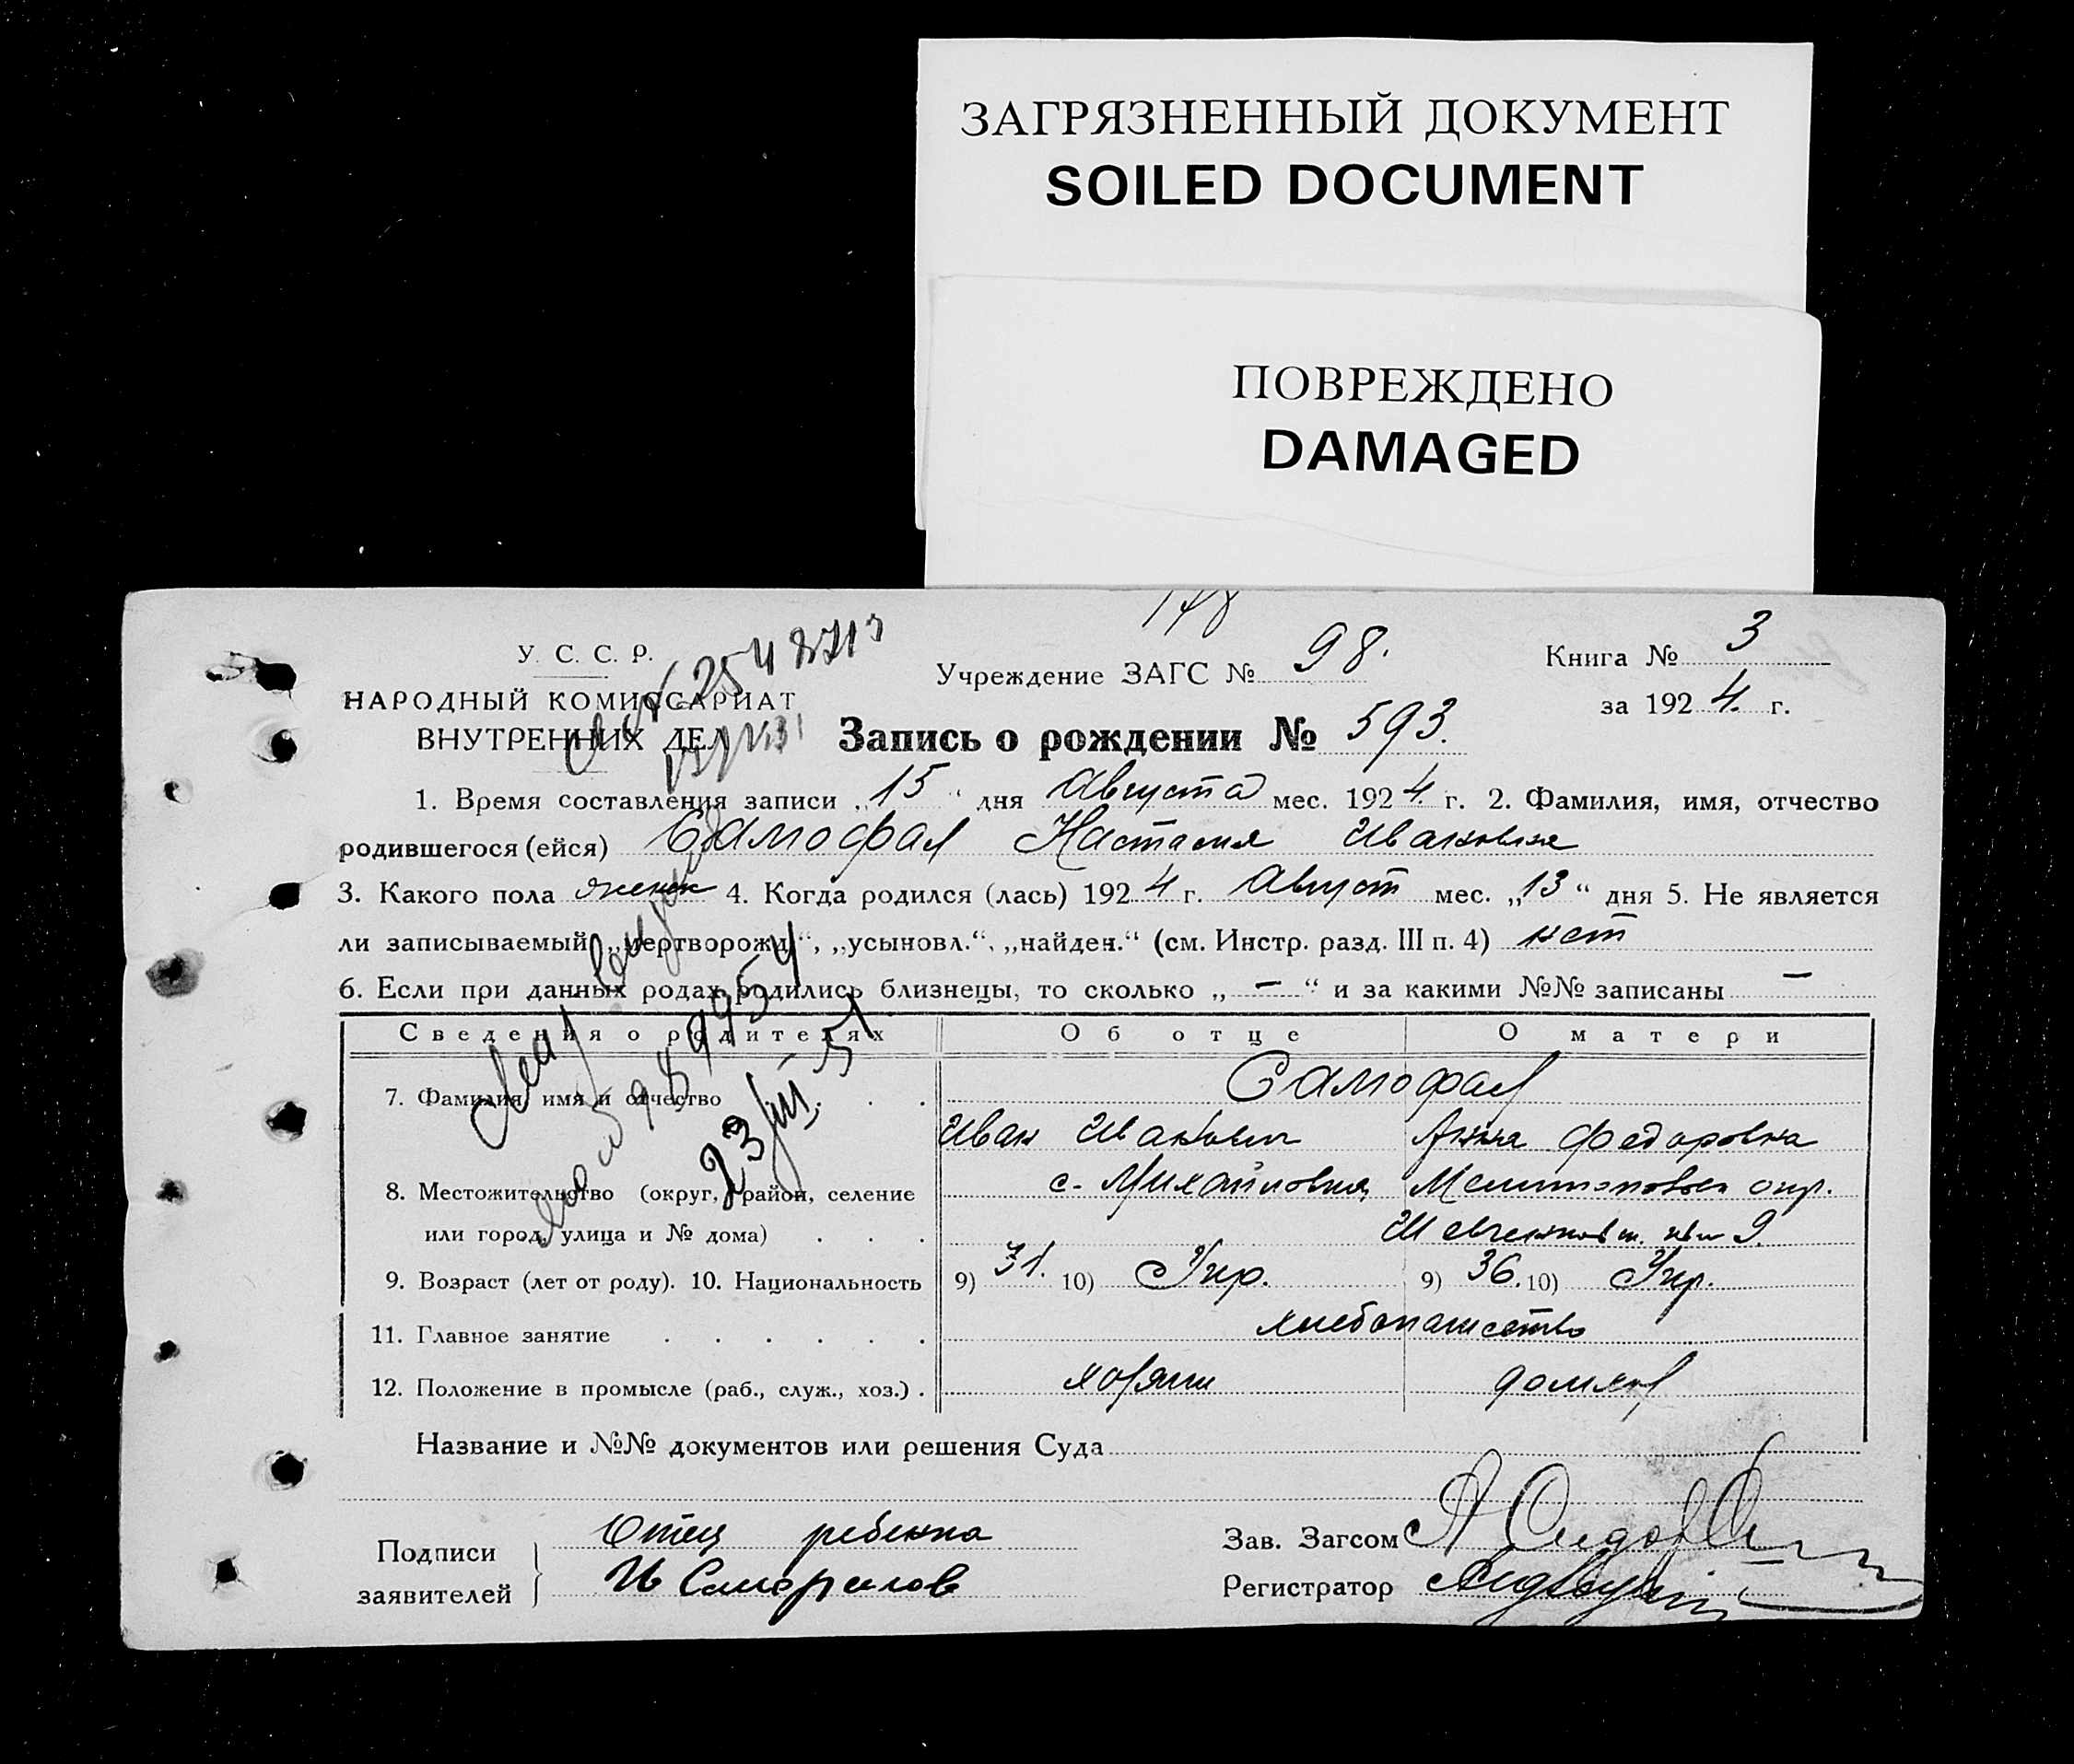 ЗАГРЯЗНЕННЫЙ ДОКУМЕНТ
SOILED DOCUMENT
ПОВРЕЖДЕНО
DAMAGED
У. С. С. Р.
НАРОДНЫЙ КОМИССАРИАТ
ВНУТРЕННИХ ДЕЛ
Учреждение ЗАГС № 98.
Книга № 3
за 1924. г.
Запись о рождении № 593.
1. Время составления записи „15“ дня Августа мес. 1924. г. 2. Фамилия, имя, отчество
родившегося (ейся) Самофал Настасия Ивановна
3. Какого пола женск 4. Когда родился (лась) 1924 г. Август мес. „13“ дня 5. Не является
ли записываемый „мертворожд.“, „усыновл.“, „найден.“ (см. Инстр. разд. III п. 4) нет
6. Если при данных родах родились близнецы, то сколько „ — “ и за какими №№ записаны —
Сведения о родителях Об отце О матери
7. Фамилия, имя и отчество . . . Самофал
Иван Иванович Анна Федоровна
8. Местожительство (округ, район, селение с. Михайловка Мелитопольск окр.
или город, улица и № дома) . . .
9. Возраст (лет от роду). 10. Национальность 9) 31. 10) Укр. 9) 36. 10) Укр.
11. Главное занятие . . . . . . хлебопашество
12. Положение в промысле (раб., служ., хоз.) . хозяин
Название и №№ документов или решения Суда
Подписи заявителей } Отец ребенка
Зав. Загсом
Регистратор
23/III-51